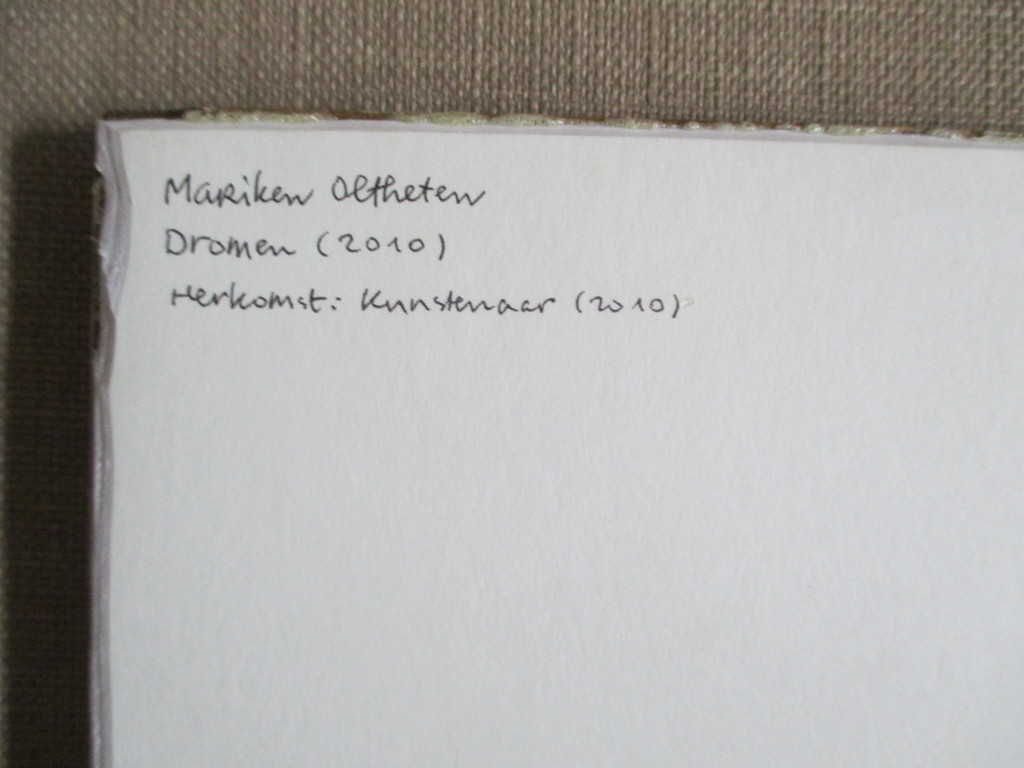 Mariken Oltheten
Dromen (2010)
Herkomst: Kunstenaar (2010)